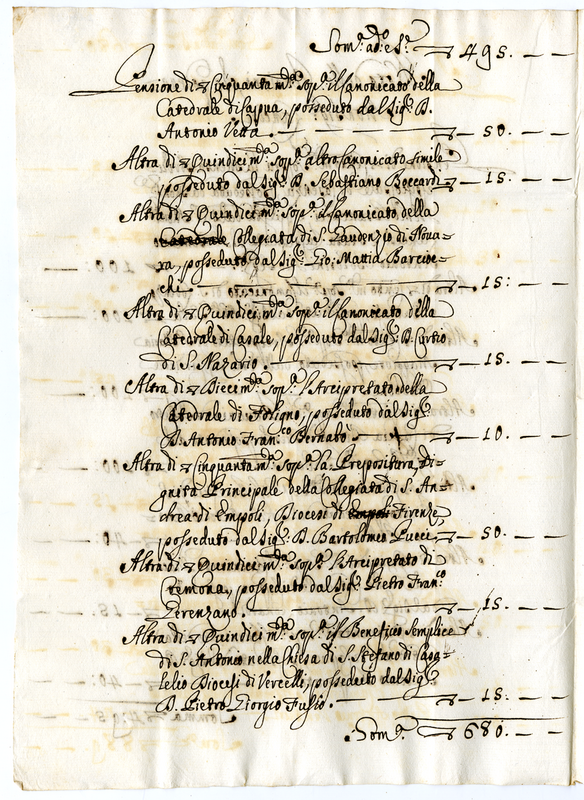 Som.ª ad.o e S.ª — 495. — —
Pensione di ▽ Cinquanta m.ta sop.ª il Canonicato della
Catedrale di Capua, posseduto dal Sig.r D.
Antonio Vetta. — 50. — —
Altra di ▽ Quindici m.ta sop.ª altro Canonicato simile
posseduto dal Sig.r D. Sebastiano Boccardi — 15. — —
Altra di ▽ Quindici m.ta sop.ª il Canonicato della
Catedrale Collegiata di S. Gaudenzio di Noua=
ra, posseduto dal Sig.r Gio: Mattia
chi — 15: — —
Altra di ▽ Quindici m.ta sop.ª il Canonicato della
Catedrale di Casale, posseduto dal Sig.r D. Curtio
di S. Nazario. — 15. — —
Altra di ▽ Dieci m.ta sop.ª l'Arcipretato della
Catedrale di Foligno, posseduto dal Sig.r
D. Antonio Fran.co Bernabò — 10. — —
Altra di ▽ Cinquanta m.ta sop.ª la Prepositura, Di=
gnità Principale della Collegiata di S. An=
drea di Empoli, Diocesi di Empoli Firenze,
posseduto dal Sig.r D. Bartolomeo Pucci — 50. — —
Altra di ▽ Quindici m.ta sop.ª l'Arcipretato di
Cremona, posseduto dal Sig.r Pietro Fran.co
Terenzano. — 15. — —
Altra di ▽ Quindici m.ta sop.ª il Beneficio Semplice
di S. Antonio nella Chiesa di S. Stefano di Casa=
lelio Diocesi di Vercelli, posseduto dal Sig.r
D. Pietro Giorgio Fusio. — 15. — —
Som.ª — 680. — —